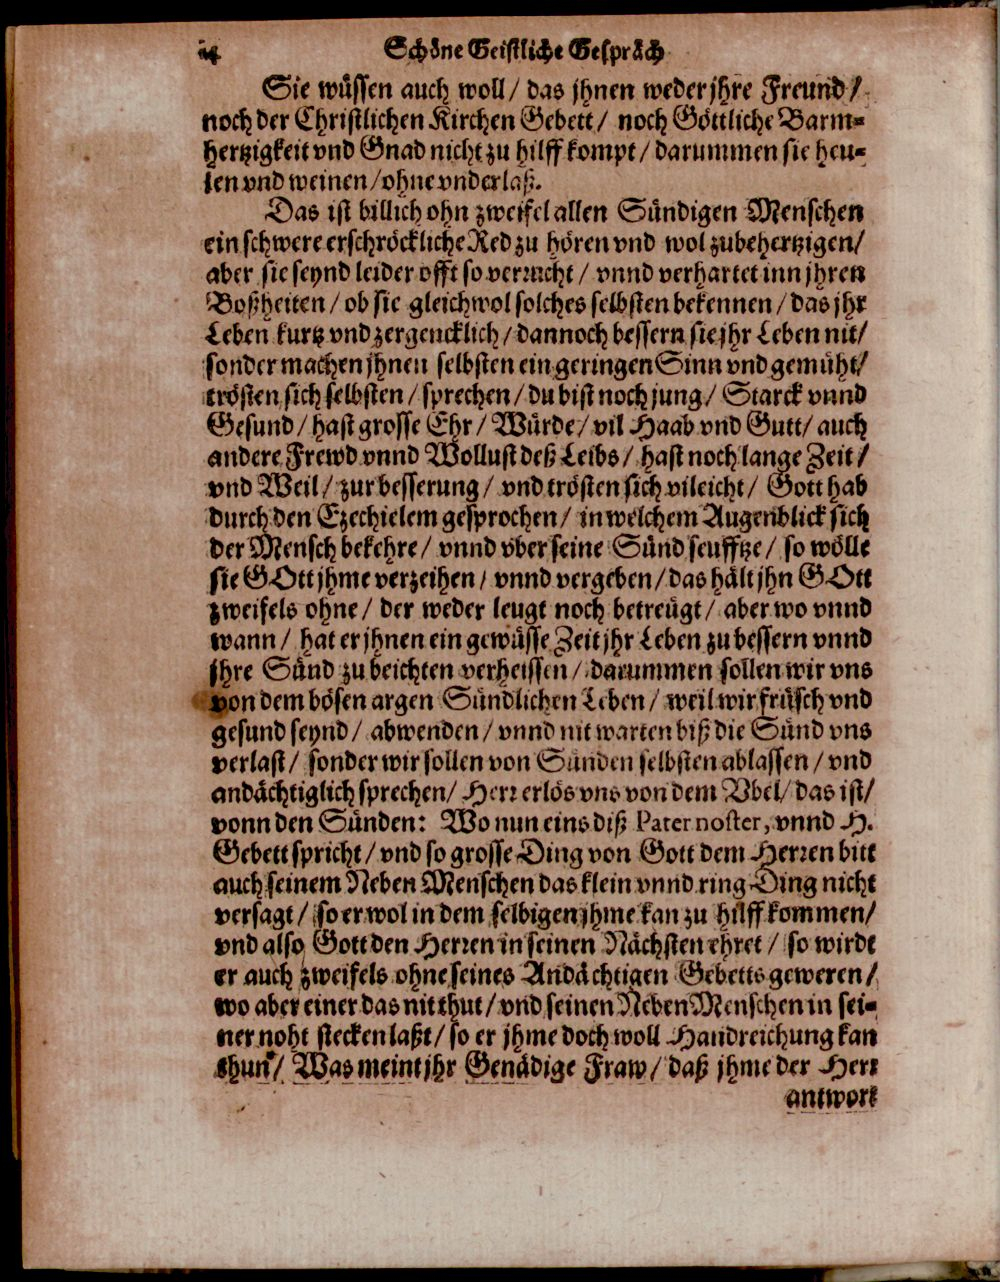 24 Schöne Geistliche Gespräch
Sie wüssen auch woll / das jhnen weder jhre Freund /
noch der Christlichen Kirchen Gebett / noch Göttliche Barm-
hertzigkeit vnd Gnad nicht zu hilff kompt / darummen sie heu-
len vnd weinen / ohne vnderlaß.
Das ist billich ohn zweifel allen Sündigen Menschen
ein schwere erschröckliche Red zu hören vnd wol zubehertzigen /
aber sie seynd leider offt so verrucht / vnnd verhartet inn jhren
Boßheiten / ob sie gleichwol solches selbsten bekennen / das jhr
Leben kurtz vnd zergencklich / dannoch bessern sie jhr Leben nit /
sonder machen jhnen selbsten ein geringen Sinn vnd gemüht /
trösten sich selbsten / sprechen / du bist noch jung / Starck vnnd
Gesund / hast grosse Ehr / Würde / vil Haab vnd Gutt / auch
andere Frewd vnnd Wollust deß Leibs / hast noch lange Zeit /
vnd Weil / zur besserung / vnd trösten sich vileicht / Gott hab
durch den Ezechielem gesprochen / in welchem Augenblick sich
der Mensch bekehre / vnnd vber seine Sünd seufftze / so wölle
sie GOtt jhme verzeihen / vnnd vergeben / das hält jhn GOtt
zweifels ohne / der weder leugt noch betreügt / aber wo vnnd
wann / hat er jhnen ein gewüsse Zeit jhr Leben zu bessern vnnd
jhre Sünd zu beichten verheissen / darummen sollen wir vns
von dem bösen argen Sündlichen Leben / weil wir früsch vnd
gesund seynd / abwenden / vnnd nit warten biß die Sünd vns
verlast / sonder wir sollen von Sünden selbsten ablassen / vnd
andächtiglich sprechen / Herr erlös vns von dem Vbel / das ist /
vonn den Sünden: Wo nun eins diß Pater noster, vnnd H.
Gebett spricht / vnd so grosse Ding von Gott dem Herren bitt
auch seinem Neben Menschen das klein vnnd ring Ding nicht
versagt / so er wol in dem selbigen jhme kan zu hilff kommen /
vnd also Gott den Herren in seinen Nächsten ehret / so wirdt
er auch zweifels ohne seines Andächtigen Gebetts geweren /
wo aber einer das nit thut / vnd seinen Neben Menschen in sei-
ner noht stecken laßt / so er jhme doch woll Handreichung kan
thun / Was meint jhr Genädige Fraw / daß jhme der Herr
antwort